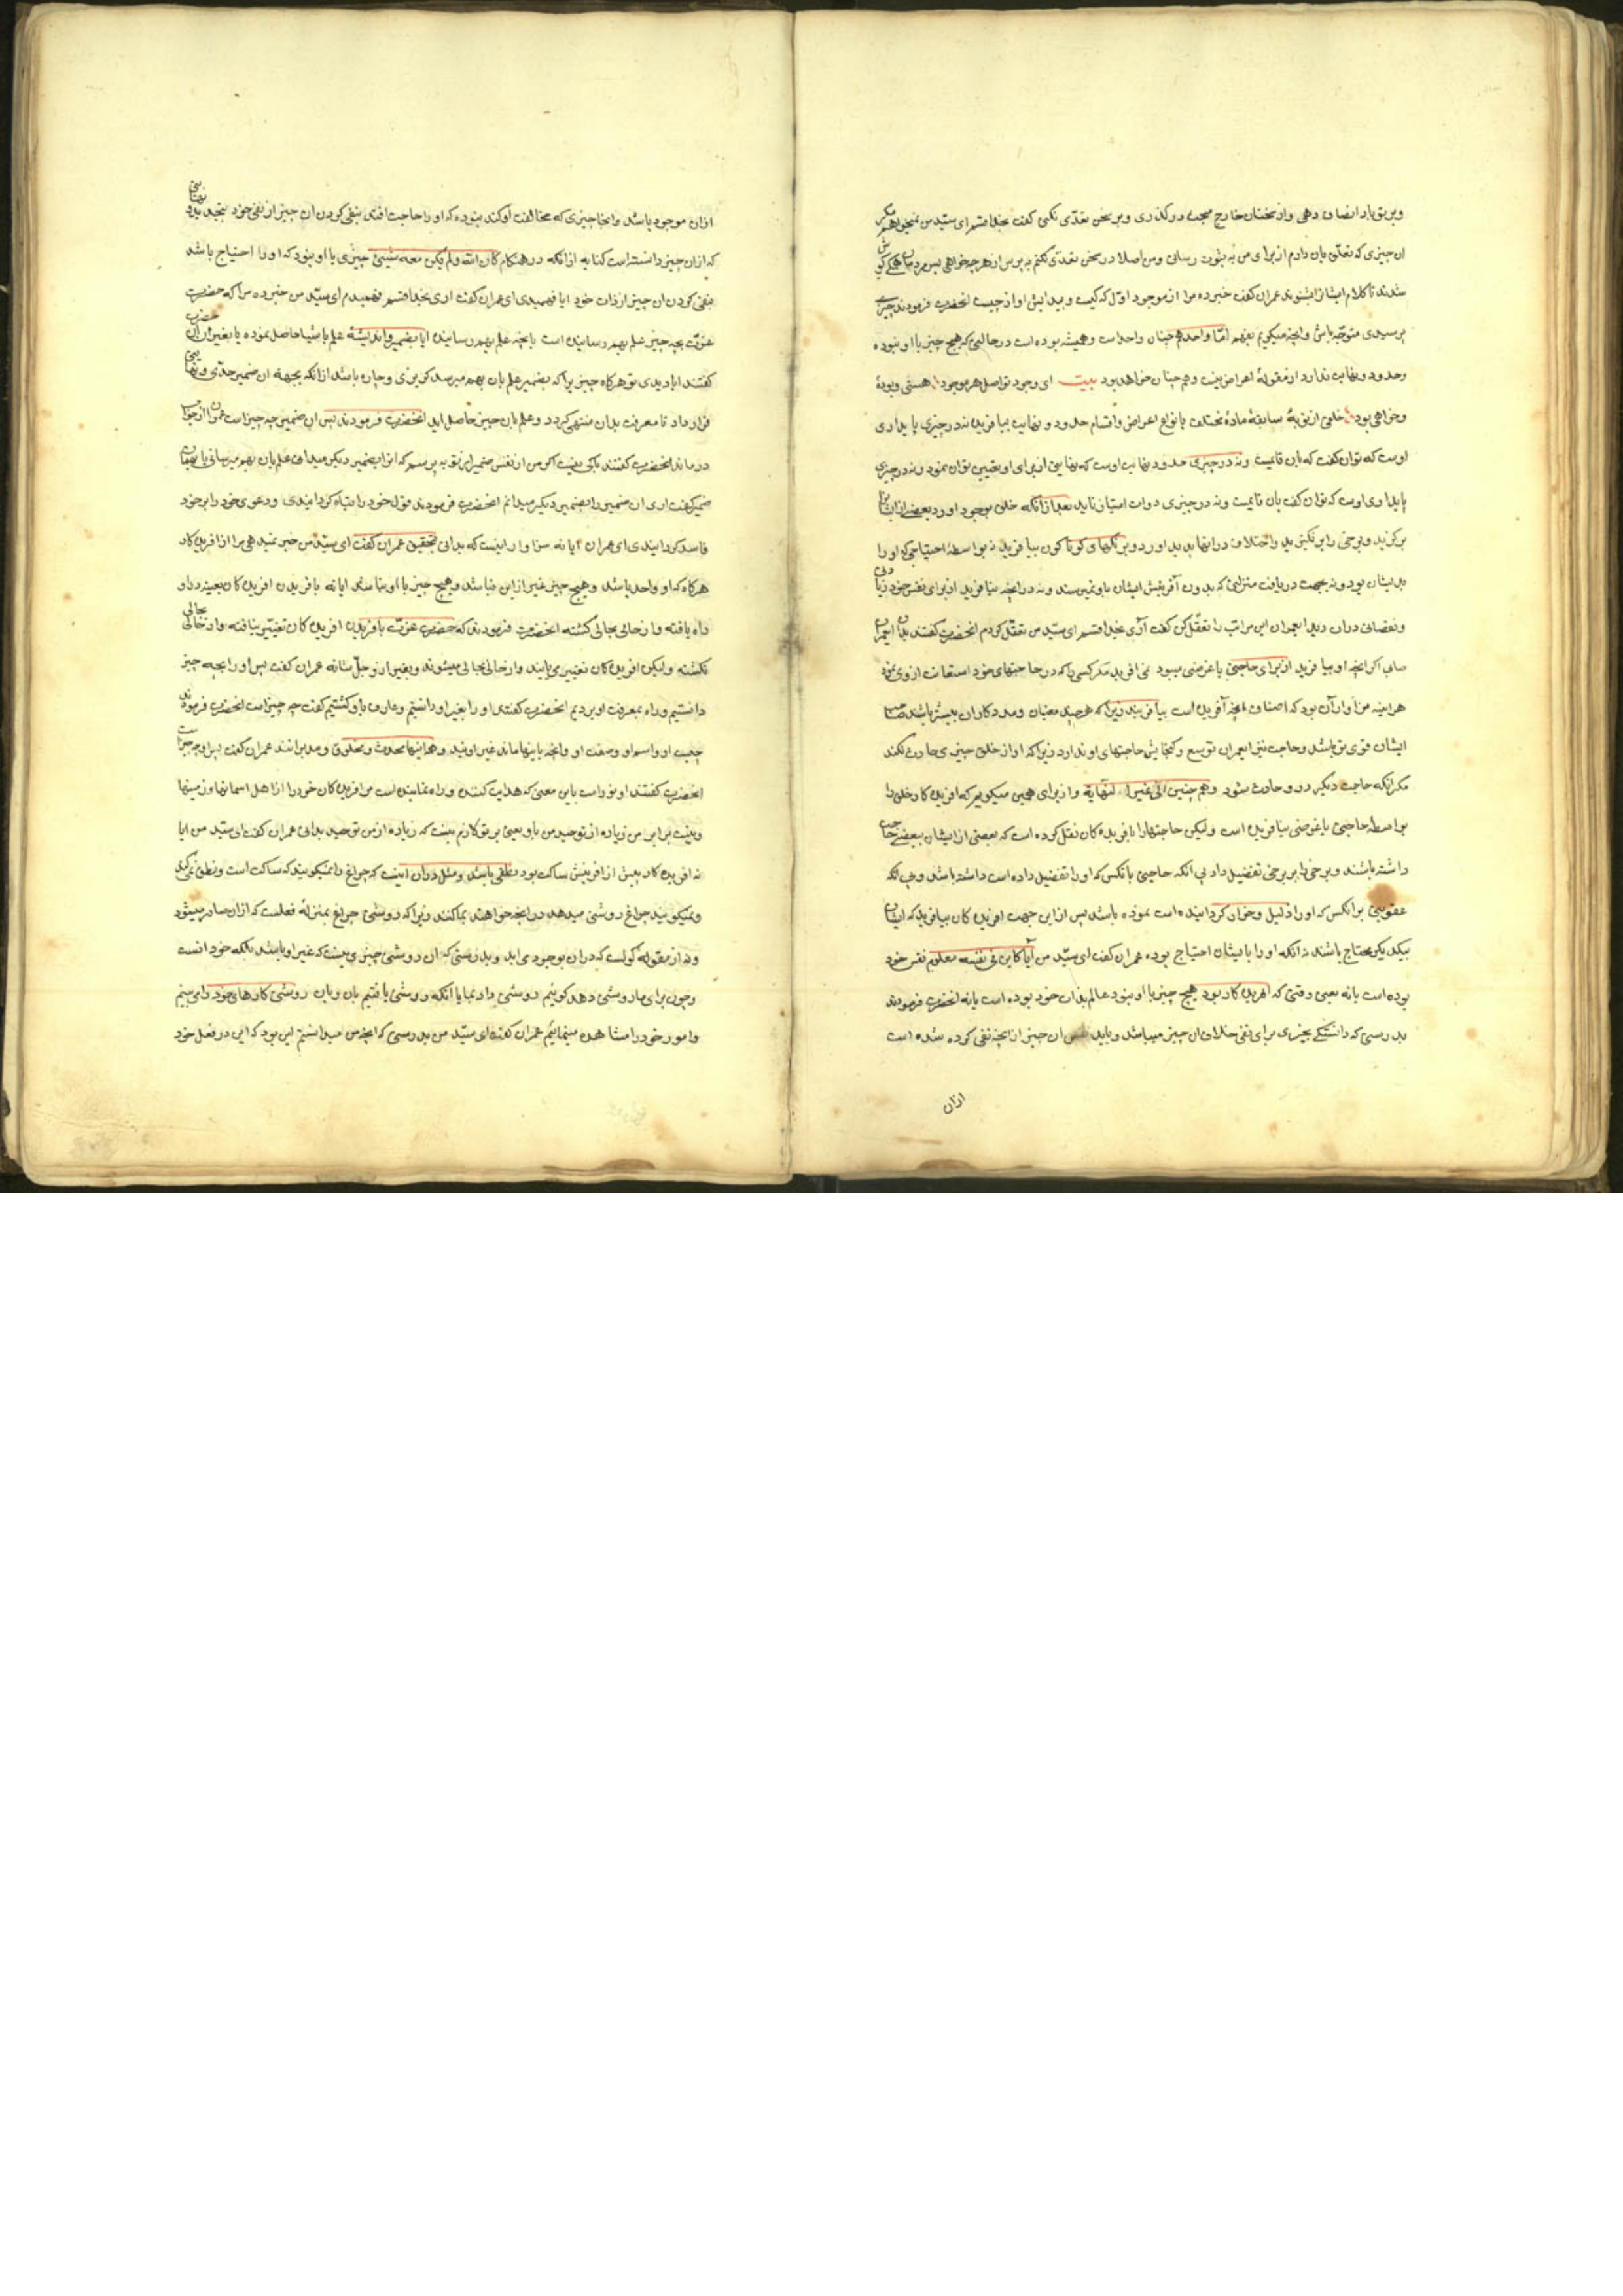 و بر تو باد انصاف دهی و از سخنان خارج مبحث درگذری و بر سخن تعدّی نکنی گفت بخدا قسم ای سیّد من نمیخواهم مگر
ان چیزی که تعلّق بان دارم از برای من به ثبوت رسانی و من اصلا در سخن تعدّی نکنم به پرس از هر چه خواهی پس مردمان همگی کوش
شدند تا کلام ایشانرا بشنوند عمران گفت خبر ده مرا از موجود اوّل که کیست و پیدایش او از چیست انحضرت فرمودند چیزی
پرسیدی متوجّه باش و انچه میکویم بفهم امّا واحد همچنان واحد است و همیشه بوده است در حالتی که هیچ چیز با او نبوده
و حدود و نهایت ندارد از مقولهٔ اعراض نیست و همچنان خواهد بود بیت ای وجود تو اصل هر موجود هستی و بودهٔ
و خواهی بود خلقی از نو بهٔ سابقهٔ مادهٔ مختلف بانواع اعراض و اقسام حدود و نهایت بیافرید نه در چیزی پایداری
اوست که توان گفت که بان قائمست و نه در چیزی حدود نهایت اوست که نهایتی از برای او تعیین توان نمود و نه در چیزی
پایداری اوست که توان گفت بان قایمست و نه در چیزی دوات امتیاز نماید بعد از انکه خلق بوجود اورد بعضی از ایشانرا
برکزید و برخی را بر نکزید و اختلاف در انها پدید اورد و برنکها و کوناکون بیافرید نه بواسطهٔ احتیاجی که او را
بدیشان بود و نه بجهت دریافت منزلتی که بدون آفرینش ایشان باو نمیرسد و نه در انچه بیافرید از برای نفس خود زیادتی
و نقصانی دران دید ایعمران این مراتب را تعقّل کن گفت آری بخدا قسم ای سیّد من تعقّل کردم انحضرت گفتند بدان ایعمران
صاب اکر انچه او بیافرید از برای حاجتی یا غرضی میبود نمی افرید مکر کسی را که در حاجتهای خود استعانت از وی نمود
هراینه سزاوار آن بود که اضعاف انچه آفریده است بیافریند زیرا که هر چند معینان و مددکاران بیشتر باشند صاحب
ایشان قوی تر باشد و حاجت نیز ایعمران توسع و کنجایش حاجتهای او ندارد زیرا که او از خلق چیزی حادث نکند
مکر انکه حاجت دیکر در و حادث شود و همچنین الی غیر النهایة و از برای همین میکویم که افریدکار خلق را
بواسطهٔ حاجتی یا غرضی نیافریده است و لیکن حاجتها را بافریدهٔ کان نقل کرده است که بعضی از ایشان ببعضی حاجت
داشته باشند و برخی را بر برخی تفضیل داد بی انکه حاجتی بانکس که او را تفضیل داده است داشته باشد و بی انکه
عقوبتی برانکس که او را ذلیل و خوار کردانیده است نموده باشد پس از این جهت افریده کان بیافرید که ایشان
بیکدیکر محتاج باشند نه انکه او را بایشان احتیاج بوده عمران گفت ای سیّد من آیا کاین فی نفسه معلوم نفس خود
بوده است یا نه یعنی وقتی که افریدکار بود هیچ چیز با او نبود عالم بذات خود بوده است یا نه انحضرت فرمودند
بدرستی که دانستکی بچیزی برای نفی خلاف ان چیز میباشد و باید نفس ان چیز از انچه نفی کرده شده است
ازان
ازان موجود باشد و انجا چیزی که مخالفت او کند نبوده که او را حاجت افتد بنفی کردن ان چیز از نفس خود
که ازان چیز دانسته است کنایه از انکه در هنکام کان الله و لم یکن معه شیئ چیزی با او نبود که او را احتیاج باشد
بنفی کردن ان چیز از ذات خود ایا فهمیدی ای عمران گفت اری بخدا قسم فهمیدم ای سیّد من خبر ده مرا که حضرت
عزّت بچه چیز علم بهم رسانیده است بانچه علم بهم رسانیده ایا بضمیر و اندیشه علم باشیا حاصل نموده یا بغیر ان حضرت
گفتند ایا دیدی تو هرکاه چیزیرا که بضمیر علم بان بهم میرسد کریزی و چاره باشد از انکه بجهة ان ضمیر حدّی و نهایتی
قرار داد تا معرفت بدان منتهی کردد و علم بان چیز حاصل اید انحضرت فرمودند پس ان ضمیر چه چیز است عمران از جواب
در ماند انحضرت گفتند باکی نیست اکر من از نفس ضمیر از تو به پرسم که انرا بضمیر دیکر میدانی علم بان بهم میرسانی یا نه عمران
ضمیر گفت اری ان ضمیر را بضمیر دیکر میدانم انحضرت فرمودند قول خود را تباه کردانیدی و دعوی خود را بر خود
فاسد کردانیدی ای عمران ایا نه سزاوار اینست که بدانی تحقیق عمران گفت ای سیّد من خبر نمیدهی مرا از افریدکار
هرکاه که او واحد باشد و هیچ چیز غیر از این نباشد و هیچ چیز با او نباشد ایا نه بافریدن افریده کان تغییر در او
راه یافته و از حالی بحالی کشته انحضرت فرمودند که حضرت عزّت بافریدن افریده کان تغییر نیافته و از حالی بحالی
نکشته و لیکن افریده کان تغییر می یابند و از حالی بحالی میشوند و بغیر او جلّ شانه عمران گفت پس او را بچه چیز
دانستیم و راه بمعرفت او بردیم انحضرت گفتند او را بغیر او دانستیم و عارف باو کشتیم گفت چه چیز است انحضرت فرمودند
چیست او و اسم او و صفت او و انچه باینها ماند غیر اویند و همه اینها محدث و مخلوق و مدبرانند عمران گفت پس او چه چیز است
انحضرت گفتند او نور است باین معنی که هدایت کننده و راه نماینده است مر افریده کان خود را از اهل اسمانها و زمینها
و نیست برای تو بر من زیاده از توحید من باو یعنی بر تو لازم نیست که زیاده از من توحید بدانی عمران گفت ای سیّد من ایا
نه افریدکار پیش از افرینش ساکت بود نطقی باشد و مثل دران اینست که چراغ را نمیکویند که ساکت است و نطق نمی کند
و نمیکویند چراغ روشنی میدهد در انچه خواهند بما کنند زیرا که روشنی چراغ بمنزلهٔ فعلست که ازان صادر میشود
و نه از مقولهٔ کونست که دران بوجود می اید و بدرستی که ان روشنی چیزی نیست که غیر او باشد بلکه خود انست
و چون برای ما روشنی دهد کوئیم روشنی داد بما یا آنکه روشنی یافتیم بان و بان روشنی کارهای خود را می بینیم
و امور خود را مشاهده مینمائیم عمران گفت ای سیّد من بدرستی که انچه من میدانستم این بود که این در فعل خود